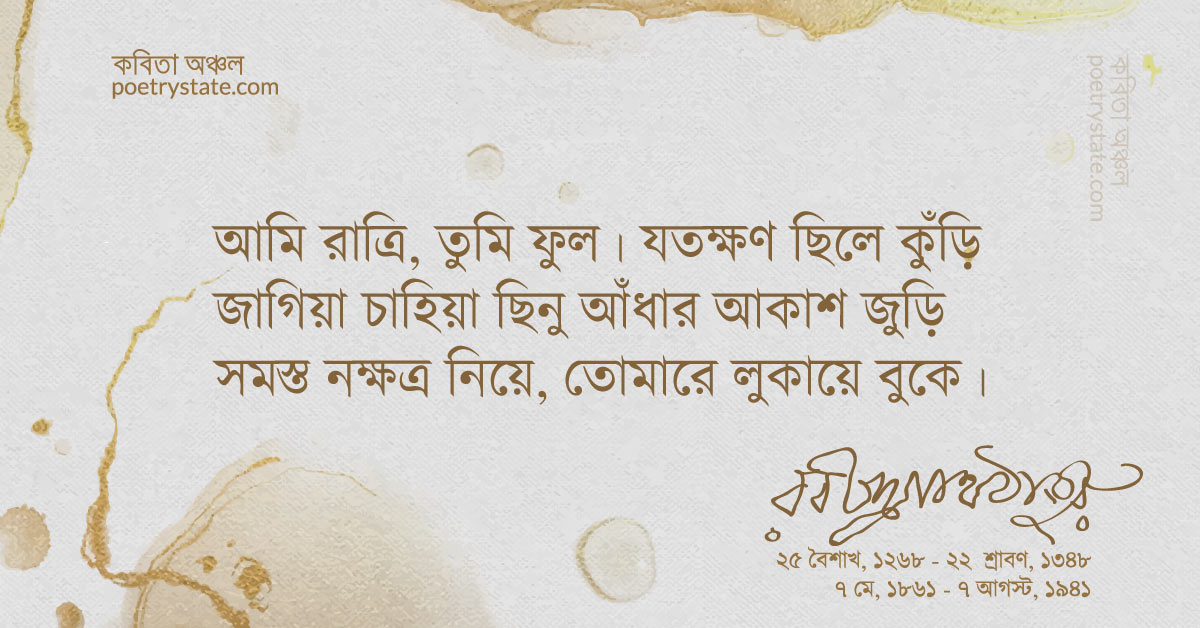 কবিতা অঞ্চল
poetrystate.com
কবিতা অঞ্চল
poetrystate.com
আমি রাত্রি, তুমি ফুল। যতক্ষণ ছিলে কুঁড়ি
জাগিয়া চাহিয়া ছিনু আঁধার আকাশ জুড়ি
সমস্ত নক্ষত্র নিয়ে, তোমারে লুকায়ে বুকে।
রবীন্দ্রনাথ ঠাকুর
২৫ বৈশাখ, ১২৬৮ - ২২ শ্রাবণ, ১৩৪৮
৭ মে, ১৮৬১ - ৭ আগস্ট, ১৯৪১